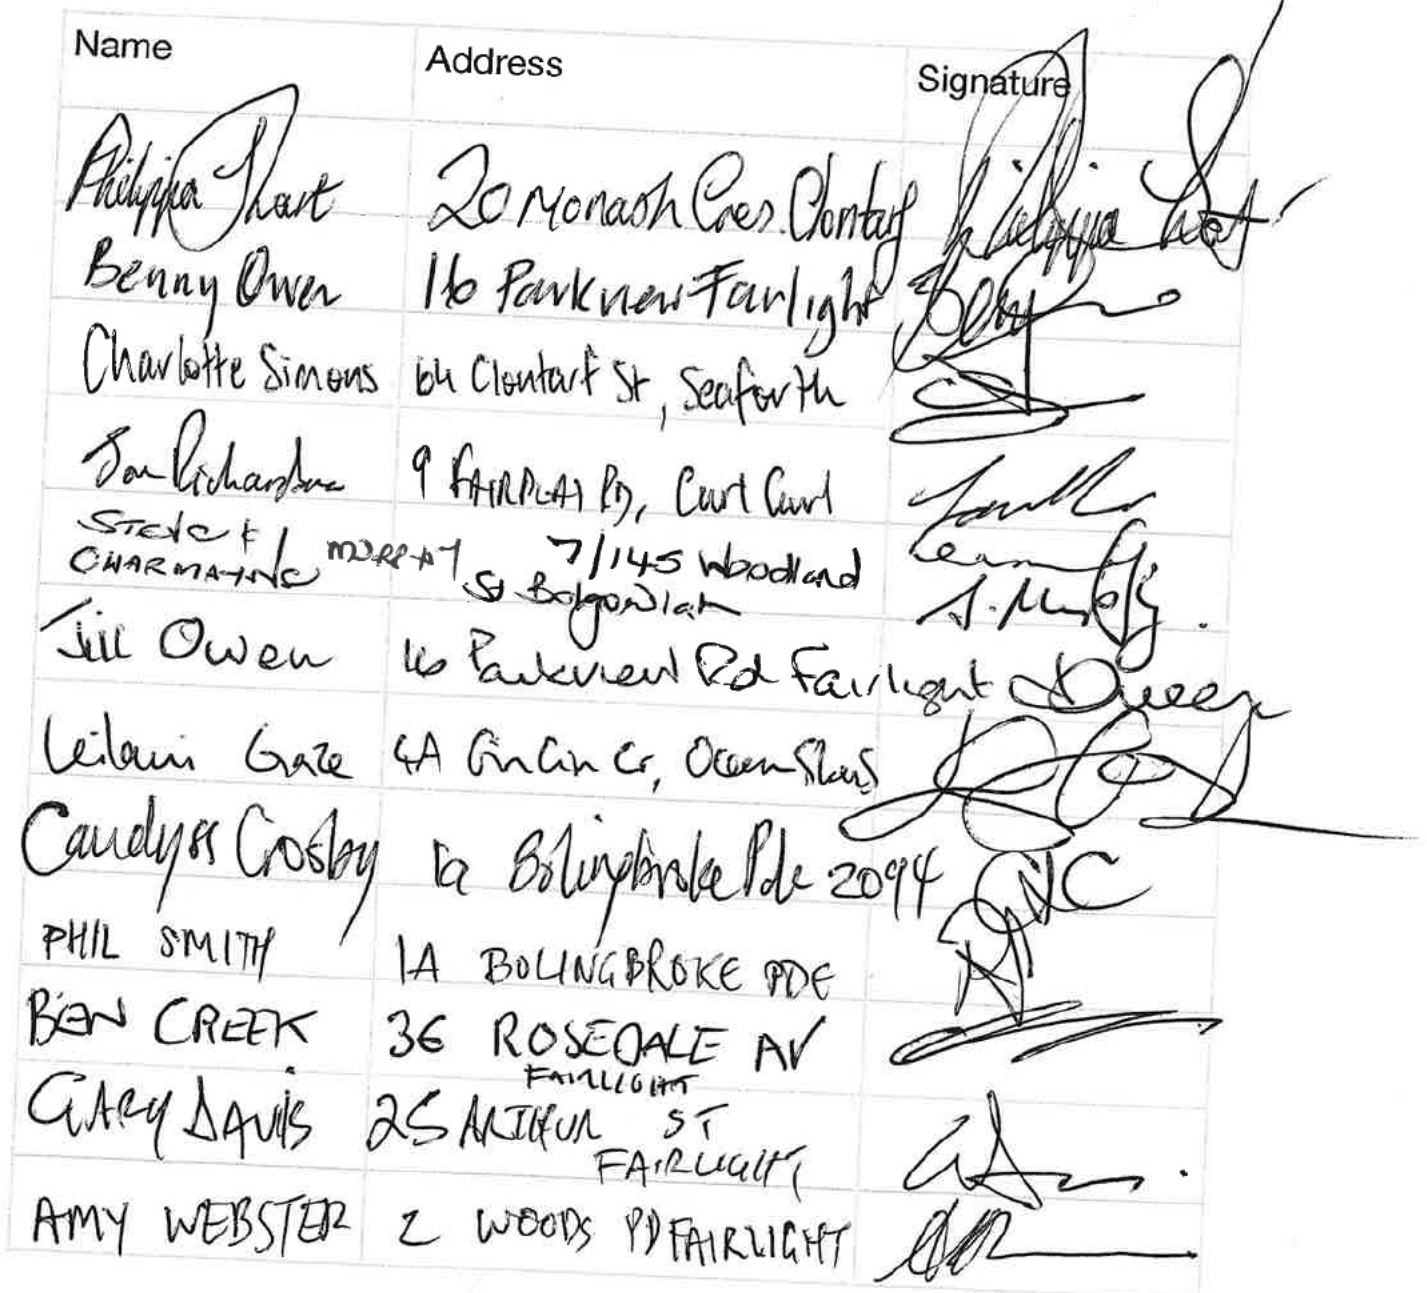 Name Address Signature
Philippa Thart 20 Monash Cres. Clontarf Philippa
Benny Owen 16 Parkview Fairlight Benny
Charlotte Simons 64 Clontarf St, Seaforth
Richardson 9 FAIRPLAY RD, Curl Curl
STEVE & 7/145 Woodland
CHARMAINE St Balgowlah S. Murphy.
Jill Owen 16 Parkview Rd Fairlight Owen
Leilani Gaze 4A Gin Gin Cr, Ocean Shores
Candyss Crosby 1a Bolingbroke Pde 2094 CNC
PHIL SMITH 1A BOLINGBROKE PDE
BEN CREEK 36 ROSEDALE AV
FAIRLIGHT
GARY DAVIS 25 ARTHUR ST
FAIRLIGHT
AMY WEBSTER 2 WOODS PD FAIRLIGHT